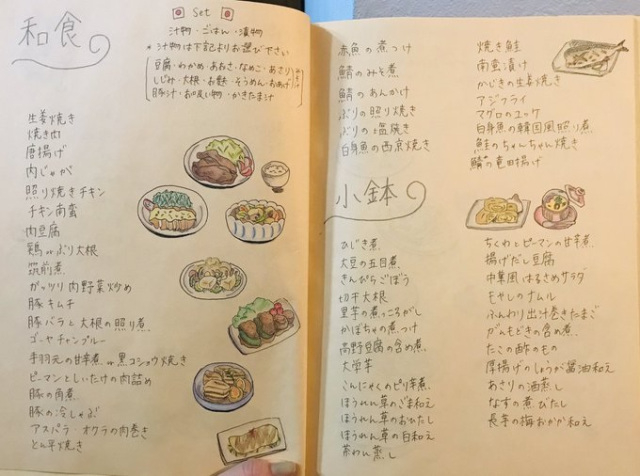 和食
Set
汁物・ごはん・漬物
*汁物は下記よりお選び下さい
豆腐・わかめ・あおさ・なめこ・あさり
しじみ・大根・お麩・そうめん・おあげ
豚汁・お吸い物・かきたま汁
生姜焼き
焼き肉
唐揚げ
肉じゃが
照り焼きチキン
チキン南蛮
肉豆腐
鶏orぶり大根
筑前煮
ガッツリ肉野菜炒め
豚キムチ
豚バラと大根の照り煮
ゴーヤチャンプルー
手羽元の甘辛煮or黒コショウ焼き
ピーマンとしいたけの肉詰め
豚の角煮
豚の冷しゃぶ
アスパラ・オクラの肉巻き
とん平焼き
赤魚の煮つけ
鯖のみそ煮
鯖のあんかけ
ぶりの照り焼き
ぶりの塩焼き
白身魚の西京焼き
焼き鮭
南蛮漬け
かじきの生姜焼き
アジフライ
マグロのユッケ
白身魚の韓国風照り煮
鮭のちゃんちゃん焼き
鯖の竜田揚げ
小鉢
ひじき煮
大豆の五目煮
きんぴらごぼう
切干大根
里芋の煮っころがし
かぼちゃの煮つけ
高野豆腐の含め煮
大学芋
こんにゃくのピリ辛煮
ほうれん草のごま和え
ほうれん草のおひたし
ほうれん草の白和え
茶わん蒸し
ちくわとピーマンの甘辛煮
揚げだし豆腐
中華風はるさめサラダ
モヤシのナムル
ふんわり出汁巻きたまご
がんもどきの含め煮
たこの酢のもの
厚揚げのしょうが醤油和え
あさりの酒蒸し
なすの煮びたし
長芋の梅おかか和え